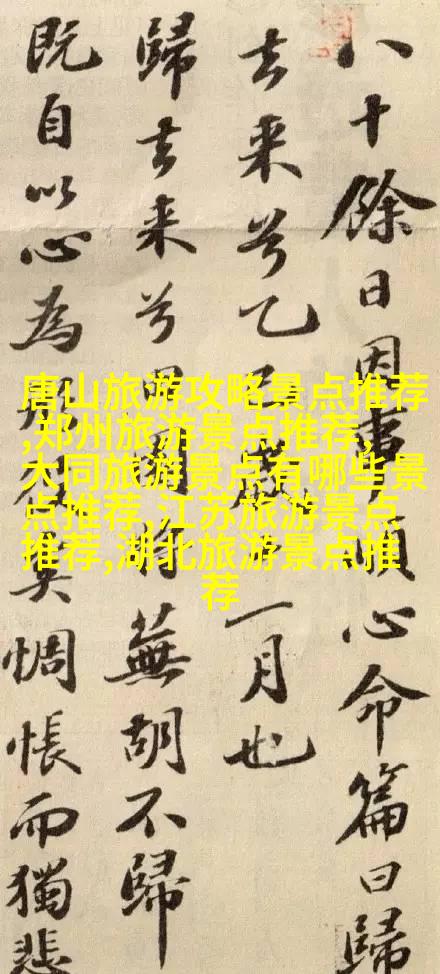 八十餘日因事順心命篇曰歸
去来兮乙巳歲十一月也
歸去来兮田園将蕪胡不歸
既自以心為形役奚惆悵而獨悲
唐山旅游攻略景点推荐
,郑州旅游景点推荐,
大同旅游景点有哪些景
点推荐,江苏旅游景点
推荐,湖北旅游景点推
荐